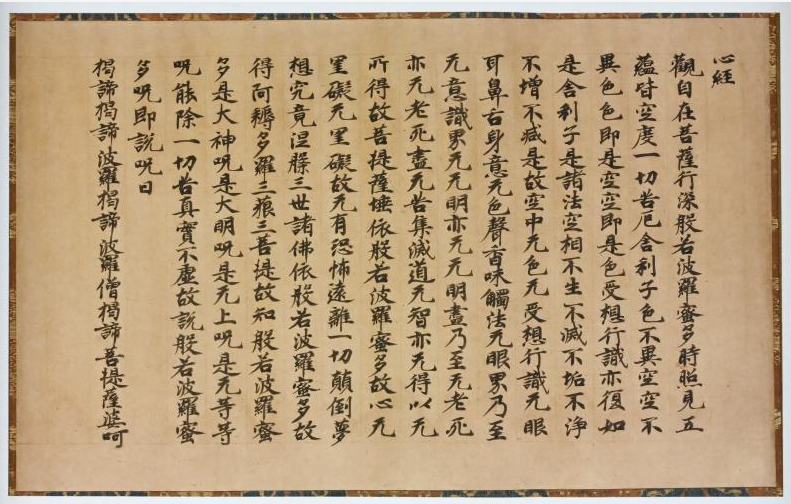 心經
觀自在菩薩行深般若波羅蜜多時照見五
蘊皆空度一切苦厄舍利子色不異空空不
異色色即是空空即是色受想行識亦復如
是舍利子是諸法空相不生不滅不垢不浄
不增不減是故空中无色无受想行識无眼
耳鼻舌身意无色聲香味觸法无眼界乃至
无意識界无无明亦无无明盡乃至无老死
亦无老死盡无苦集滅道无智亦无得以无
所得故菩提薩埵依般若波羅蜜多故心无
罣礙无罣礙故无有恐怖遠離一切顛倒夢
想究竟涅槃三世諸佛依般若波羅蜜多故
得阿耨多羅三藐三菩提故知般若波羅蜜
多是大神呪是大明呪是无上呪是无等等
呪能除一切苦真實不虛故說般若波羅蜜
多呪即說呪曰
揭諦揭諦波羅揭諦波羅僧揭諦菩提薩婆呵